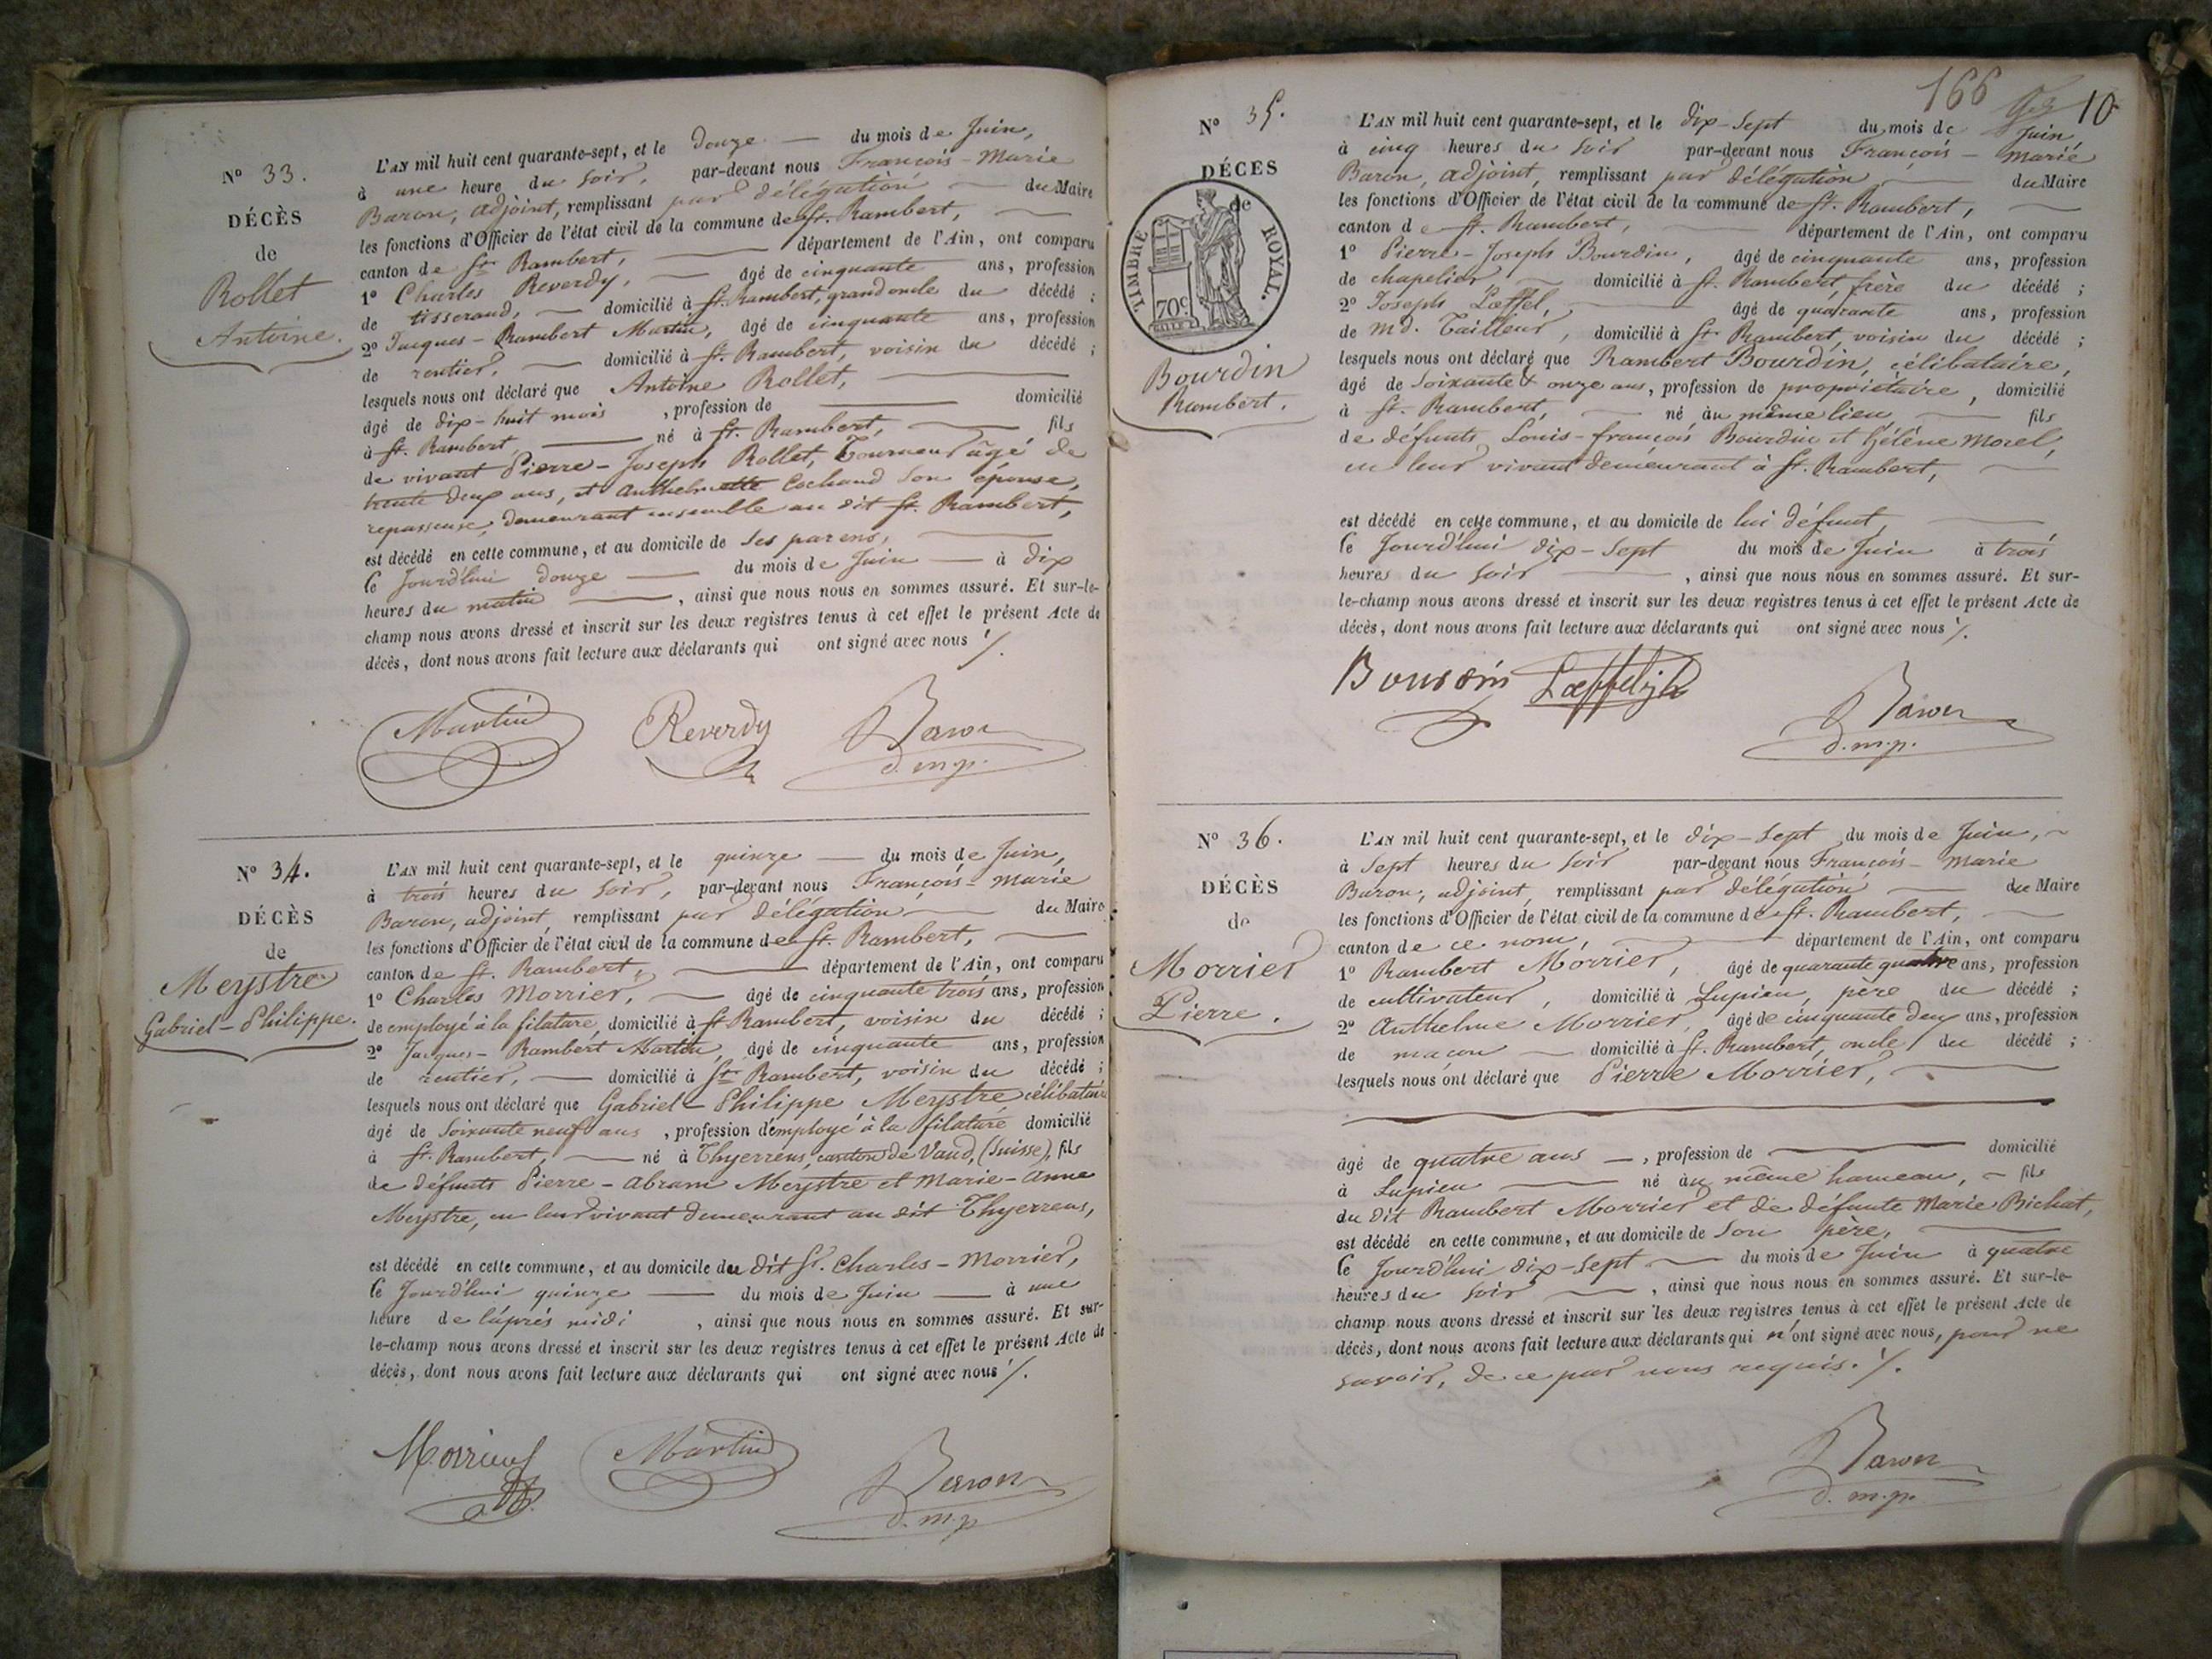 N° 33.
DÉCÈS
de
Rollet
Antoine.
L'AN mil huit cent quarante-sept, et le douze du mois de Juin,
à une heure du soir, par-devant nous François-Marie
Baron, adjoint, remplissant par délégation du Maire
les fonctions d'Officier de l'état civil de la commune de St. Rambert,
canton de St. Rambert, département de l'Ain, ont comparu
1° Charles Reverdy, âgé de cinquante ans, profession
de tisserand, domicilié à St. Rambert, grand oncle du décédé ;
2° Jacques-Rambert Martin, âgé de cinquante ans, profession
de rentier, domicilié à St. Rambert, voisin du décédé ;
lesquels nous ont déclaré que Antoine Rollet,
âgé de dix-huit mois, profession de domicilié
à St. Rambert, né à St. Rambert, fils
de vivant Pierre-Joseph Rollet, Tourneur âgé de
trente deux ans, et Anthelmette Cochaud son épouse,
repasseuse, demeurant ensemble au dit St. Rambert,
est décédé en cette commune, et au domicile de ses parens,
le jourd'hui douze du mois de Juin à dix
heures du matin, ainsi que nous nous en sommes assuré. Et sur-le-
champ nous avons dressé et inscrit sur les deux registres tenus à cet effet le présent Acte de
décès, dont nous avons fait lecture aux déclarants qui ont signé avec nous ./.
Martin Reverdy Baron
d. m. p.
N° 34.
DÉCÈS
de
Meystre
Gabriel-Philippe.
L'AN mil huit cent quarante-sept, et le quinze du mois de Juin,
à trois heures du soir, par-devant nous François-Marie
Baron, adjoint, remplissant par délégation du Maire
les fonctions d'Officier de l'état civil de la commune de St. Rambert,
canton de St. Rambert, département de l'Ain, ont comparu
1° Charles Morrier, âgé de cinquante trois ans, profession
de employé à la filature, domicilié à St. Rambert, voisin du décédé ;
2° Jacques-Rambert Martin, âgé de cinquante ans, profession
de rentier, domicilié à St. Rambert, voisin du décédé ;
lesquels nous ont déclaré que Gabriel-Philippe Meystre célibataire
âgé de soixante neuf ans, profession d'employé à la filature domicilié
à St. Rambert, né à Thyerrens, canton de Vaud, (Suisse), fils
de défunts Pierre-Abram Meystre et Marie-Anne
Meystre, en leur vivant demeurant au dit Thyerrens,
est décédé en cette commune, et au domicile du dit Sr. Charles-Morrier,
le jourd'hui quinze du mois de Juin à une
heure de l'après midi, ainsi que nous nous en sommes assuré. Et sur-
le-champ nous avons dressé et inscrit sur les deux registres tenus à cet effet le présent Acte de
décès, dont nous avons fait lecture aux déclarants qui ont signé avec nous ./.
Martin Baron
d. m. p
166 10
N° 35.
DÉCES
de
TIMBRE ROYAL.
70 c.
Bourdin
Rambert.
L'AN mil huit cent quarante-sept, et le dix-sept du mois de Juin
à cinq heures du soir par-devant nous François-Marie
Baron, adjoint, remplissant par délégation du Maire
les fonctions d'Officier de l'état civil de la commune de St. Rambert,
canton de St. Rambert, département de l'Ain, ont comparu
1° Pierre-Joseph Bourdin, âgé de cinquante ans, profession
de chapelier domicilié à St. Rambert, frère du décédé ;
2° Joseph Lœffel, âgé de quarante ans, profession
de md. Tailleur, domicilié à St. Rambert, voisin du décédé ;
lesquels nous ont déclaré que Rambert Bourdin, célibataire,
âgé de soixante & onze ans, profession de propriétaire, domicilié
à St. Rambert, né au même lieu fils
de défunts Louis-françois Bourdin et hélène Morel,
en leur vivant demeurant à St. Rambert,
est décédé en cette commune, et au domicile de lui défunt,
le jourd'hui dix-sept du mois de Juin à trois
heures du soir, ainsi que nous nous en sommes assuré. Et sur-
le-champ nous avons dressé et inscrit sur les deux registres tenus à cet effet le présent Acte de
décès, dont nous avons fait lecture aux déclarants qui ont signé avec nous ./.
Bourdin Baron
d. m. p.
N° 36.
DÉCÈS
de
Morrier
Pierre.
L'AN mil huit cent quarante-sept, et le dix-sept du mois de Juin,
à sept heures du soir par-devant nous François-Marie
Baron, adjoint, remplissant par délégation du Maire
les fonctions d'Officier de l'état civil de la commune de St. Rambert,
canton de ce nom, département de l'Ain, ont comparu
1° Rambert Morrier, âgé de quarante quatre ans, profession
de cultivateur, domicilié à Lupieu, père du décédé ;
2° Anthelme Morrier, âgé de cinquante deux ans, profession
de maçon domicilié à St. Rambert, oncle du décédé ;
lesquels nous ont déclaré que Pierre Morrier,
âgé de quatre ans, profession de domicilié
à Lupieu né au même hameau, fils
du dit Rambert Morrier et de défunte Marie Bichat,
est décédé en cette commune, et au domicile de son père,
le jourd'hui dix-sept du mois de Juin à quatre
heures du soir, ainsi que nous nous en sommes assuré. Et sur-le-
champ nous avons dressé et inscrit sur les deux registres tenus à cet effet le présent Acte de
décès, dont nous avons fait lecture aux déclarants qui n'ont signé avec nous, pour ne
savoir, de ce par nous requis. ./.
Baron
d. m. p.